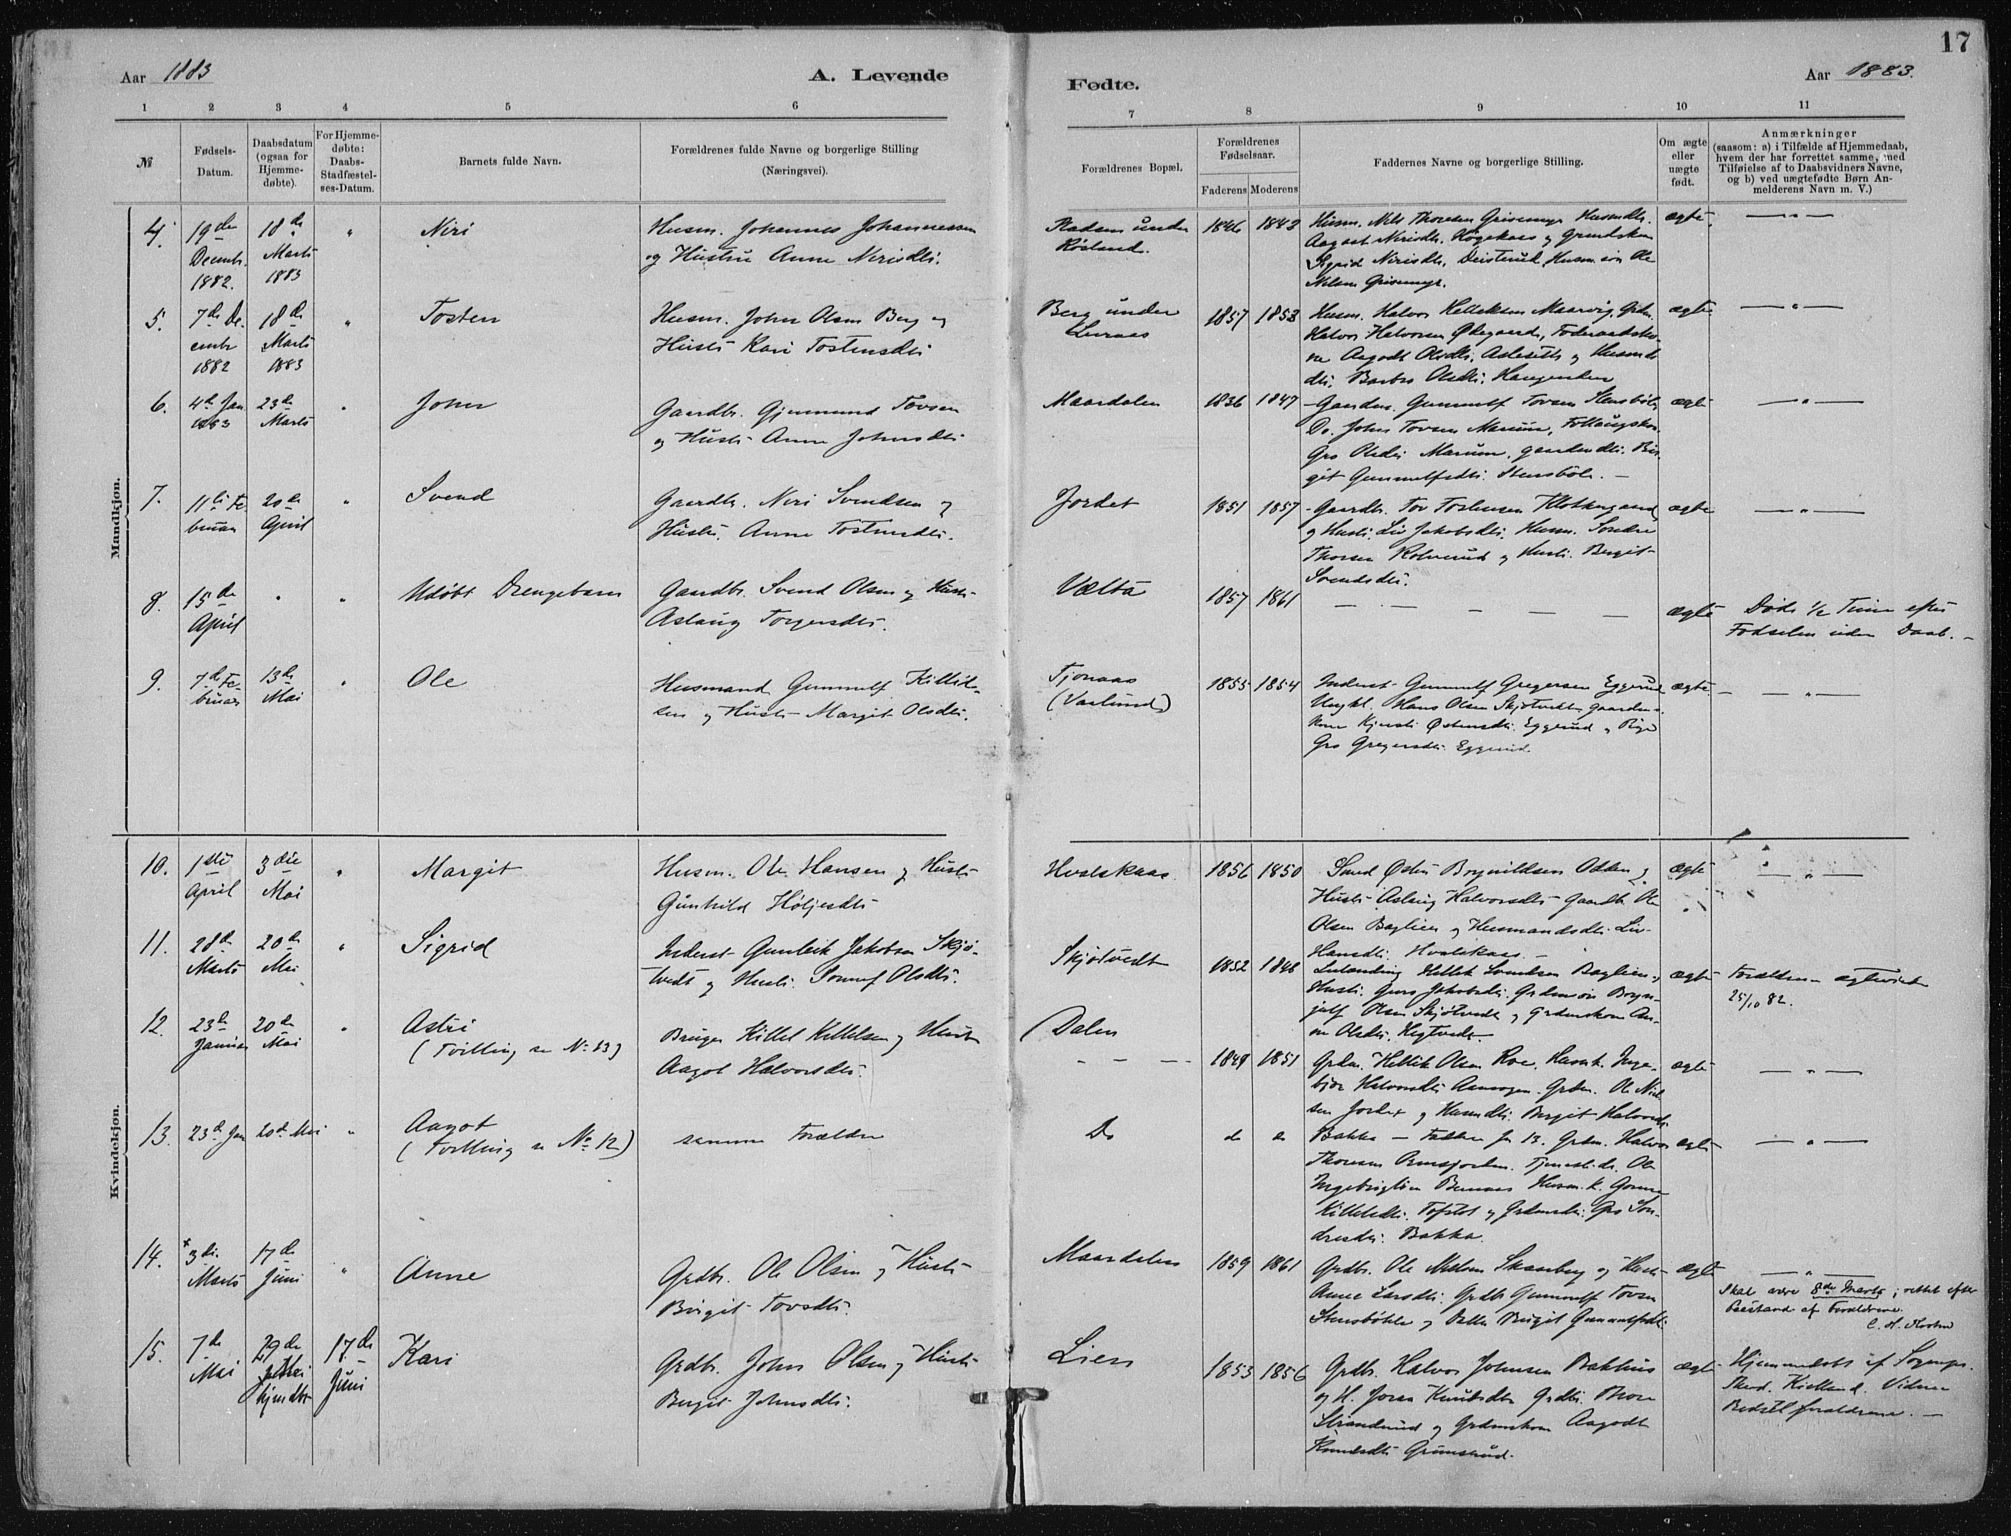 17
Aar 1883
A. Levende
Fødte.
Aar 1883.
1 2 3 4 5 6 7 8 9 10 11
№
Fødsels-
Datum.
Daabsdatum
(ogsaa for
Hjemme-
døbte).
For Hjemme-
døbte:
Daabs-
Stadfæstel-
ses-Datum.
Barnets fulde Navn.
Forældrenes fulde Navne og borgerlige Stilling
(Næringsvei).
Forældrenes Bopæl.
Forældrenes
Fødselsaar.
Faderens Moderens
Faddernes Navne og borgerlige Stilling.
Om ægte
eller
uægte
født.
Anmærkninger
(saasom: a) i Tilfælde af Hjemmedaab,
hvem der har forrettet samme, med
Tilføielse af to Daabsvidners Navne,
og b) ved uægtefødte Børn An-
melderens Navn m. V.)
Mandkjøn.
4. 19de Decembr. 1882. 18de Marts 1883 " Niri
Husm. Johannes Johannessen
og Hustru Anne Nirisdtr.
under
Røsland.
1846 1843
Husm. Nils Thoresen Grivemyr Husmdtr.
Aagaat Nirisdtr. Høgekaas og
Sigrid Nirisdtr. Husm. søn Ole
Nilsen Grivemyr.
ægte — " —
5. 7de De- cembr 1882 18de Marts 1883 " Tosten
Husm. John Olsen Berg og
Hustr Kari Tostensdtr
Berg under
Luraas
1857 1853
Husm. Halvor Kittilsen Maarvig, Grdm.
Halvor Halvorsen Ødegaard, Foderaadsko-
ne Aagodt Olsdtr. Aslesett og Husmds
dtr. Barbro Olsdtr. Haugerden
ægte — " —
6. 4de Jan 1883 23de Marts " John
Gaardbr. Gjermund Tovsen
og Hustr Anne Johnsdtr
Maardalen
1836 1847
Gaardm. Gunnulf Tovsen Stensbøle,
Do. John Tovsen Marum,
Gro Olsdtr Marum, gaardmdtr. Bir-
git Gunnulfsdtr. Stensbøle. —
ægte — " —
7. 11te Fe- bruar 20de April " Svend
Gaardbr. Niri Svendsen og
Hustr. Anne Tostensdtr.
Jordet
1851 1857
Gaardbr. Tov Tostensen Klokkergaard
og Hustr. Liv Jakobsdtr. Husm. Sondre
Thorsen Rolverud og Hustr. Bergit
Svendsdtr.
ægte — " —
8. 15de April " " Udøbt Drengebarn
Gaardbr. Svend Olsen og Hustr
Aslaug Torgersdtr.
Vælta
1857 1861
— — — — —
ægte
Døde 1/2 Time efter
Fødselen uden Daab. —
9. 7de Fe- bruar 13de Mai " Ole
Husmand Gunnulf Kittil-
sen og Hustr Margit Olsdtr.
Tjønaas
(Vaslund)
1855 1854
Inderst Gunnulf Gregersen Eggerud
Ungkl. Hans Olsen Skjøtvedt, gaardm.
kone Kjersti Østensdtr. Eggerud og Pige
Gro Gregersdtr. Eggerud.
ægte — " —
Kvindekjøn.
10. 1ste April 3die Mai " Margit
Husm. Ole Hansen og Hustr
Gunhild Høljesdtr
Hvalskaas.
1856 1850
Østen Brynildsen Odden og
Hustr Aslaug Halvorsdtr Gaardb. Ole
Olsen Baglien og Husmandsdtr. Liv
Hansdtr. Hvalskaas. —
ægte — " —
11. 28de Marts 20de Mai " Sigrid
Inderst Gunleik Jakobsen Skjø-
tvedt og Hustr. Olsdtr.
Skjøtvedt
1852 1848
Kittil Svendsen Baglien og
Hustr. Guro Jakobsdtr. Grdmsøn Bryn-
julf Olsen Skjøtvedt og Grdmskone An-
ne Olsdtr.
ægte
Forældrene ægteviet
25/10 82.
12. 23de Januar 20de Mai " Astri
(Tvilling se No 13)
Bruger Kittel Kittelsen og Hustr
Aagot Halvorsdtr.
Dalen
— — —
1849 1851
Grdm. Kittil Olsen Roe, Husmk. Inge-
bjør Halvorsdtr Grdm. Ole Niel-
sen Jordet og Husmdtr. Bergit Halvorsdtr
ægte — " —
13. 23de Jan 20de Mai " Aagot
(Tvilling se No 12)
samme Forældre
Do do do
Bakka — Faddere for 13. Grdm. Halvor
Thoresen Tjenestdr. Ole
Husm.k. Gunne
Kittelsdtr. Tofstol og Grdmsdtr. Gro Son-
dresdtr. Bakka.
ægte — " —
14. × 3die Marts 17de Juni " Anne
Grdbr. Ole Olsen og Hustr
Birgit Tovsdtr.
Maardalen
1859 1861
Grdbr. Ole Nielsen Skaarberg og Hustr
Anne Larsdtr. Grdbr Gunnulf Tovsen
Stensbøhle og Datter Birgit Gunnulfsdtr.
ægte — " —
Skal være 8de Marts; rettet efter
Paastand af Forældrene.
15. 7de Mai 29de Mai hjmdbt 17de Juni Kari
Grdbr. John Olsen og Hustr
Bergit Johnsdtr.
Lien
1853 1856
Grdbr. Halvor Johnsen Bakhus
og H. Joran Knutsdtr Grdbr. Thore
Strandrud og Grdmskone Aagodt
Knudsdtr Grimsrud.
ægte
Hjemmedøbt af Sogenpr.
Thod. Kielland. Vidner
Bedstforældrene. —